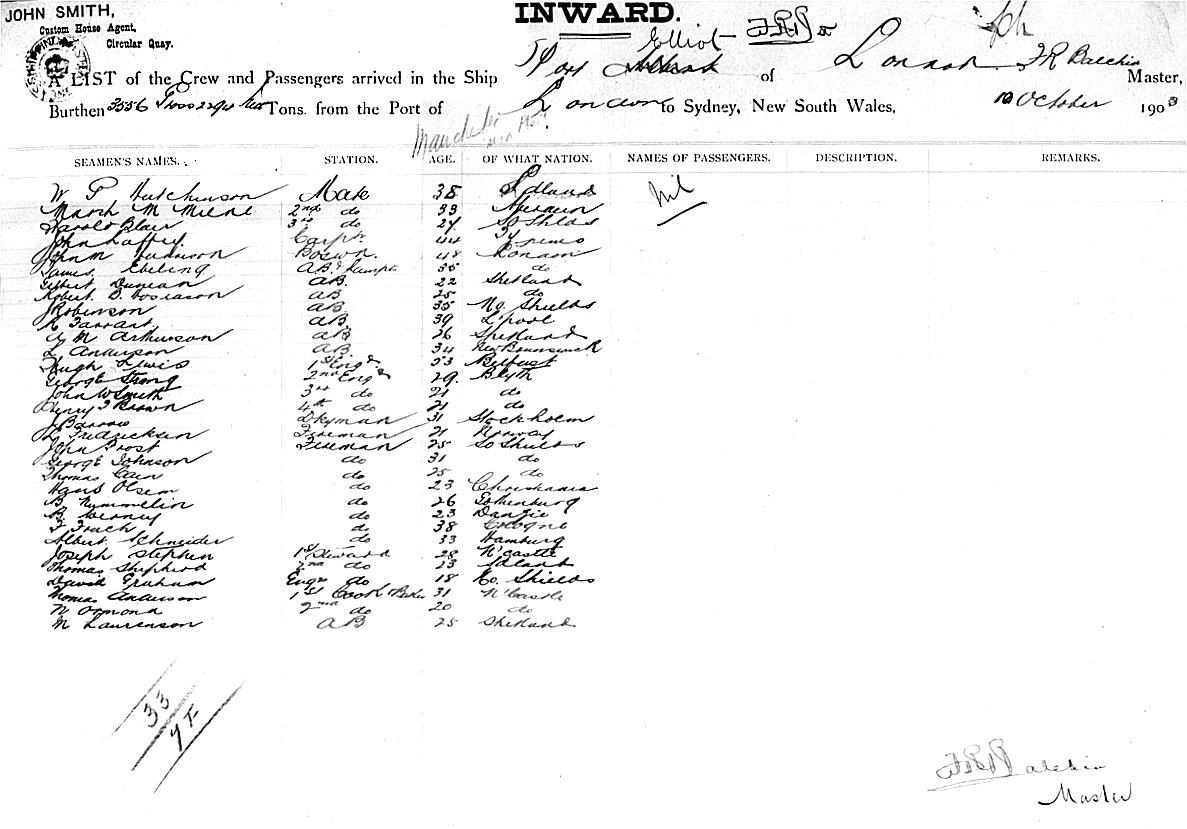 JOHN SMITH,
Custom House Agent,
Circular Quay.
INWARD.
A LIST of the Crew and Passengers arrived in the Ship Port Elliot of London F R Balchin Master,
Burthen 3556 Gross 2294 Net Tons. from the Port of London to Sydney, New South Wales, 10 October 1903
Manchester
SEAMEN'S NAMES. STATION. AGE. OF WHAT NATION. NAMES OF PASSENGERS. DESCRIPTION. REMARKS.
W P Hutchinson Mate 38 Nil
Marsh M Milne 2nd do 33 Aberdeen
Harold Blair 3rd do 29 So Shlds
John Laffey Carptr 44
John M Bosun. 48 London
James Ebeling AB & Lamps 35 do
Gilbert Duncan AB. 22 Shetland
Robert AB 25 do
J Robinson AB 35 No. Shields
R Tarrant AB. 39 L'pool
A M Arthurson AB 26 Shetland
L Anderson AB 34 New Brunswick
Hugh Lewis 1st Engr 53 Belfast
George Strong 2nd Engr 29. Blyth
John W Smith 3rd do 21 do
Henry J Brown 4th do 21 do
J Barrow Dkyman 31 Stockholm
L Fredricksen Fireman 21 Norway
John Frost Fireman 25 So Shields
George Johnson do 31 do
Thomas Cain do 25 do
Hans Olsen do 23 Christiania
B Nymmelin do 26 Gothenburg
B do 23 Danzic
F do 38 Cologne
Albert Schneider do 33 Hamburg
Joseph Stephen 1st Steward 28 N'castle
Thomas Shepherd 2nd do 23
David Graham Engrs do 18 No. Shields
Thomas Anderson 1st Cook & Baker 31 N'Castle
W Ormond 2nd do 20 do
N Laurenson AB 25 Shetland
33
F R Balchin
Master